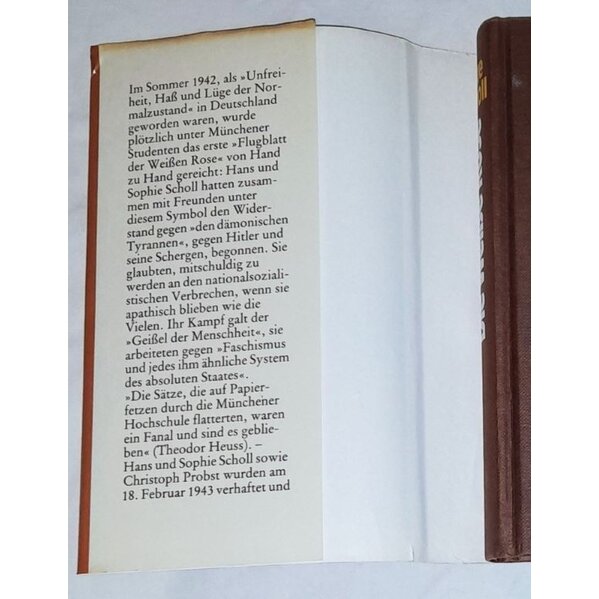 Im Sommer 1942, als »Unfrei-
heit, Haß und Lüge der Nor-
malzustand« in Deutschland
geworden waren, wurde
plötzlich unter Münchener
Studenten das erste »Flugblatt
der Weißen Rose« von Hand
zu Hand gereicht: Hans und
Sophie Scholl hatten zusam-
men mit Freunden unter
diesem Symbol den Wider-
stand gegen »den dämonischen
Tyrannen«, gegen Hitler und
seine Schergen, begonnen. Sie
glaubten, mitschuldig zu
werden an den nationalsoziali-
stischen Verbrechen, wenn sie
apathisch blieben wie die
Vielen. Ihr Kampf galt der
»Geißel der Menschheit«, sie
arbeiteten gegen »Faschismus
und jedes ihm ähnliche System
des absoluten Staates«.
»Die Sätze, die auf Papier-
fetzen durch die Münchener
Hochschule flatterten, waren
ein Fanal und sind es geblie-
ben« (Theodor Heuss). –
Hans und Sophie Scholl sowie
Christoph Probst wurden am
18. Februar 1943 verhaftet und